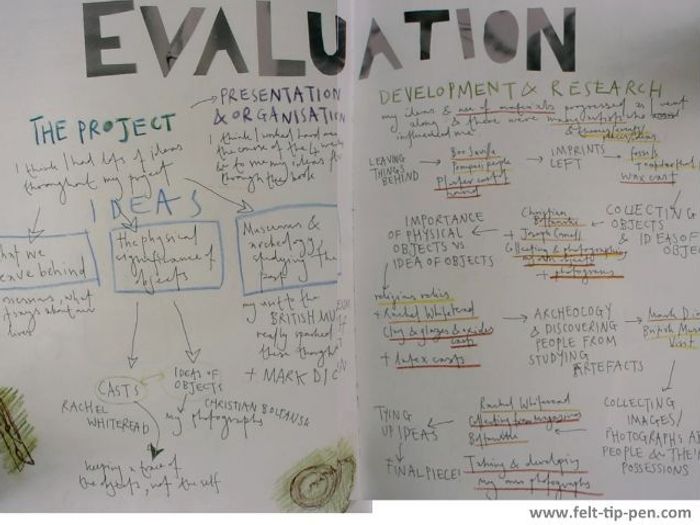 EVALUATION
THE PROJECT
I think I had lots of ideas
throughout my project
PRESENTATION
& ORGANISATION
I think I worked hard over
the course of the 4
to me my ideas
through the book
IDEAS
what we
leave behind
the physical
significance of
objects
Museums &
archeology,
studying the
past
what
says about our
lives
my visit to the
BRITISH MU
really sparked
these thoughts
+ MARK DI
CASTS
IDEAS OF
OBJECTS
RACHEL
WHITEREAD
CHRISTIAN BOLTANSK
my photographs
keeping a trace of
the objects, not the self
DEVELOPMENT & RESEARCH
my ideas & use of materials progressed as I went
along, & there were many artists who
influenced me
LEAVING
THINGS
BEHIND
Pompeii people
Plaster cast of
hand
IMPRINTS
LEFT
fossils
wax cast
COLLECTING
OBJECTS
& IDEAS OF
OBJE
Christian
Boltanski
+ Joseph Cornell
Collecting & photographing
objects
+ photograms
IMPORTANCE
OF PHYSICAL
OBJECTS VS
IDEA OF OBJECTS
religious relics
+ Rachel Whiteread
Clay & glazes & oxides
casts
+ Latex casts
ARCHEOLOGY
& DISCOVERING
PEOPLE FROM
STUDYING
ARTEFACTS
Mark Di
British Muse
Visit
COLLECTING
IMAGES/
PHOTOGRAPHS OF
PEOPLE & THEI
POSSESSIONS
Rachel Whiteread
Collecting from magazines
Boltanski
Taking & developing
my own photographs
TYING
UP IDEAS
FINAL PIECE!
www.felt-tip-pen.com